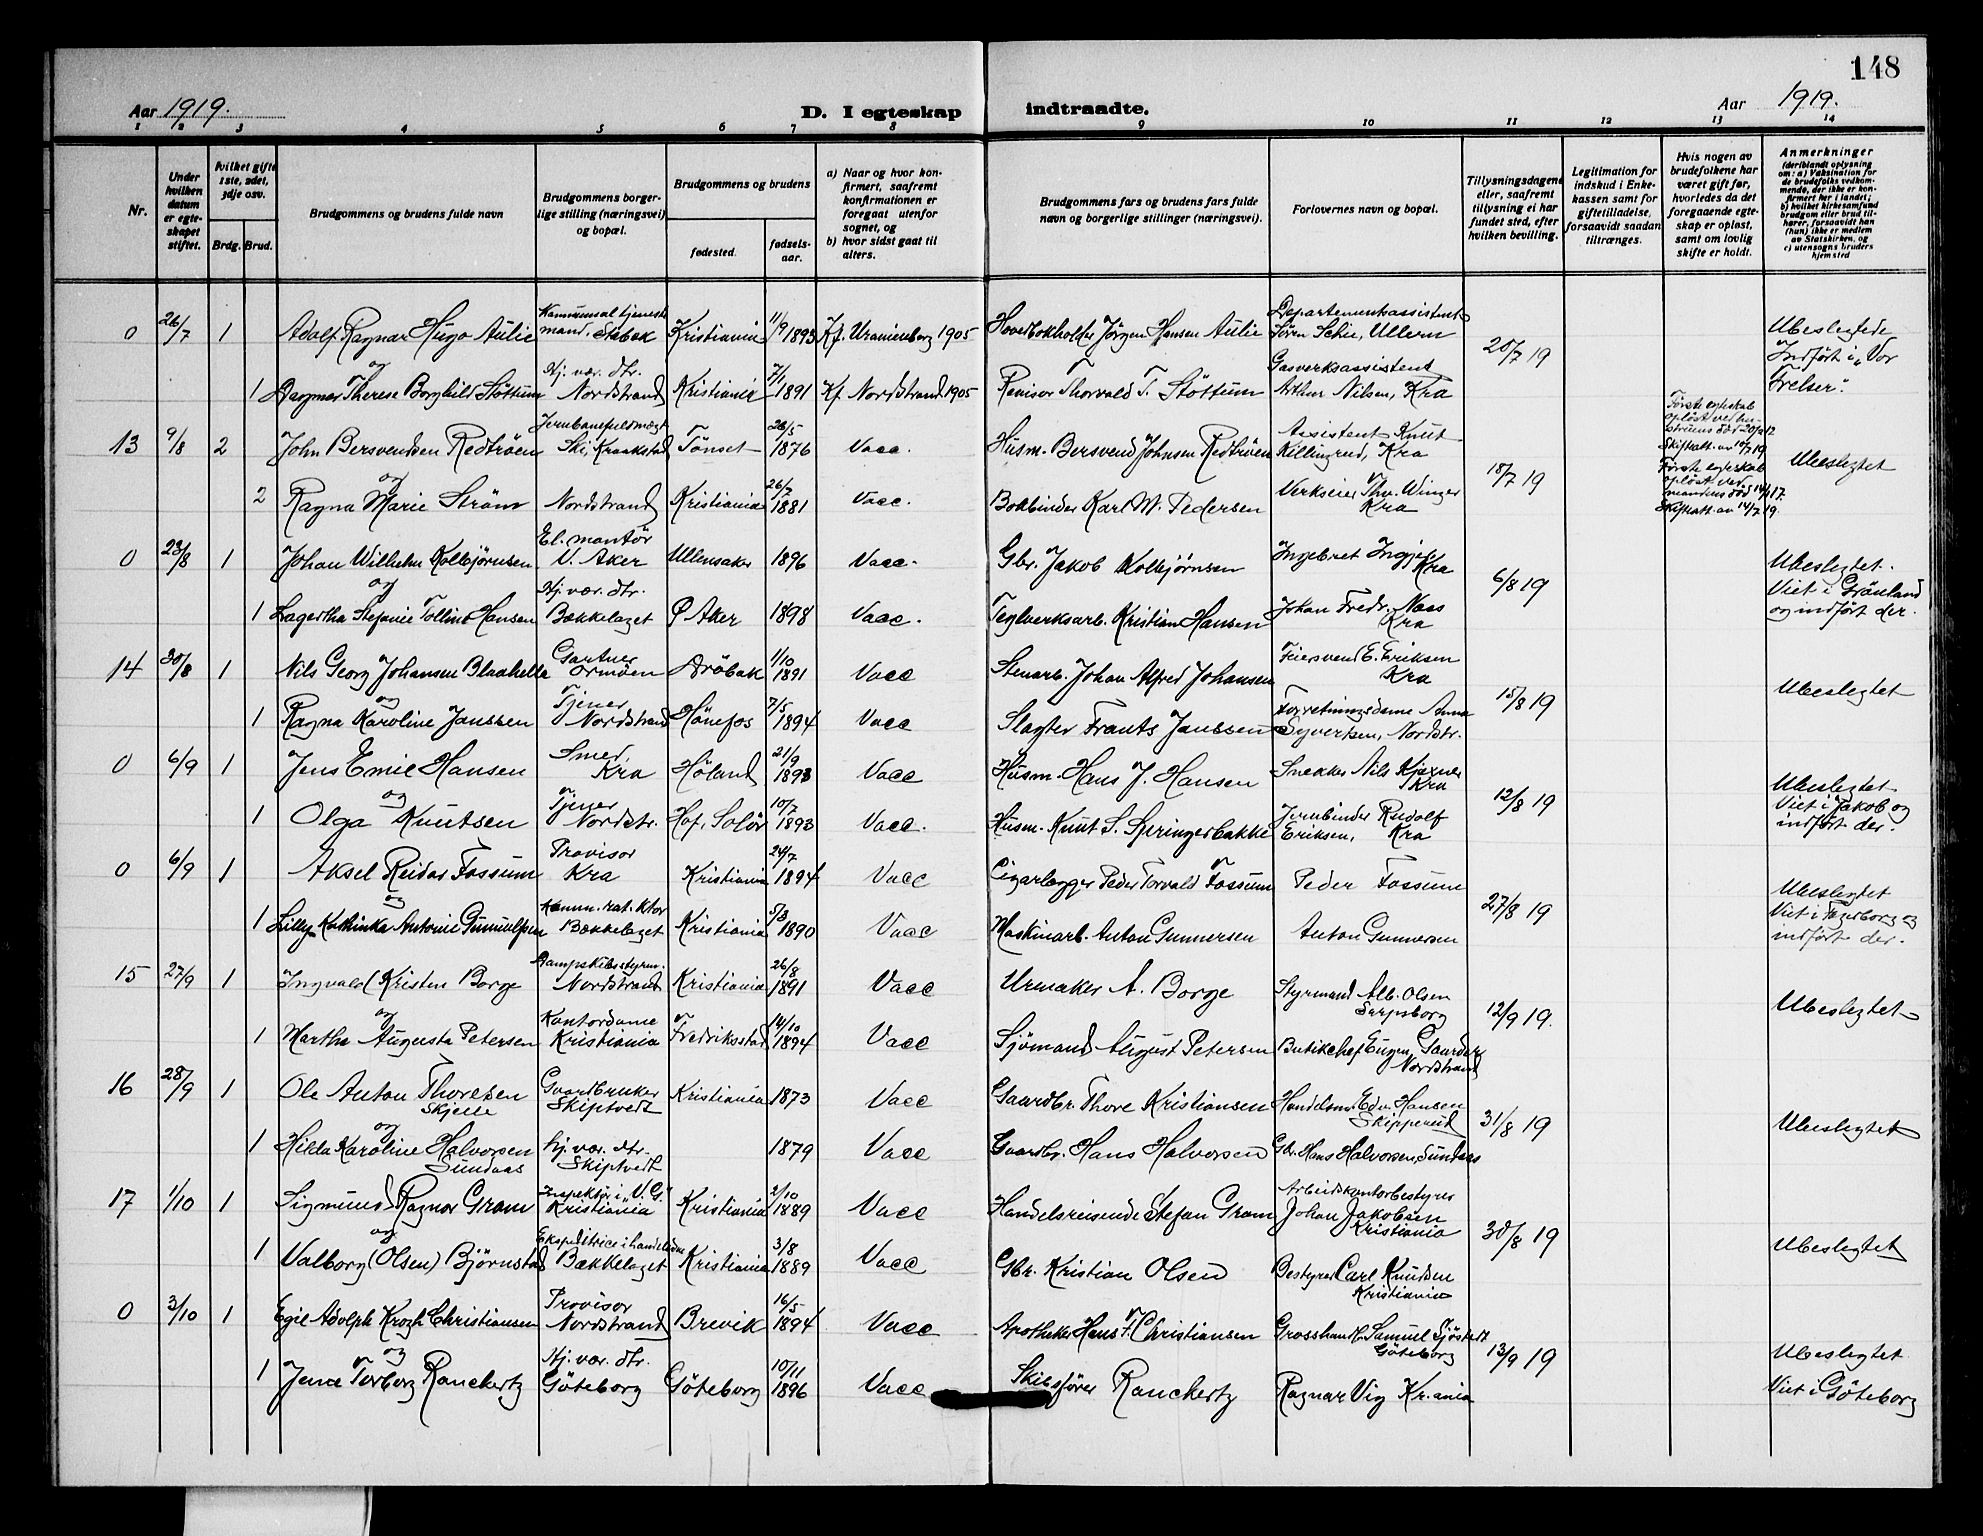 148
Aar 1919.
D. I egteskap indtraadte.
Aar 1919.
1 2 3 4 5 6 7 8 9 10 11 12 13 14
Nr.
Under hvilken datum er egteskapet stiftet.
hvilket gifte 1ste, 2det, 3dje osv.
Brdg. Brud.
Brudgommens og brudens fulde navn
Brudgommens borgerlige stilling (næringsvei) og bopæl.
Brudgommens og brudens
fødested.
fødselsaar.
a) Naar og hvor konfirmert, saafremt konfirmationen er foregaat utenfor sognet, og
b) hvor sidst gaat til alters.
Brudgommens fars og brudens fars fulde navn og borgerlige stillinger (næringsvei).
Forlovernes navn og bopæl.
Tillysningsdagene eller, saafremt tillysning ei har fundet sted, efter hvilken bevilling.
Legitimation for indskud i Enkekassen samt for giftetilladelse, forsaavidt saadan tiltrænges.
Hvis nogen av brudefolkene har været gift før, hvorledes da det foregaaende egteskap er opløst, samt om lovlig skifte er holdt.
Anmerkninger
(deriblandt oplysning om: a) Vaksination for de brudefolks vedkommende, der ikke er konfirmert her i landet; b) hvilket kirkesamfund brudgom eller brud tilhører, forsaavidt han (hun) ikke er medlem av Statskirken, og c) utensogns bruders hjemsted
0 26/7 1 Adolf Ragnar Hugo Aulie Kommunal tjenestemand, Stabek Kristiania 11/9 1893 Kf. Uranienborg 1905 Hovedbokholder Jørgen Hansen Aulie Departementsassistent Søren Schie, Ullern 20/7 19 Ubeslegtede Indført i "Vor Frelser".
og
1 Dagmar Therese Borghild Støttum Hj. vær. dtr. Nordstrand Kristiania 7/1 1891 Kf. Nordstrand 1905 Revisor Thorvald T. Støttum Gasverksassistent Arthur Nilsen, Kra
13 9/8 2 John Bersvendsen Redtrøen Jernbanefuldmægt. Ski, Kraakstad Tønset 26/5 1876 Vacc. Husm. Bersvend Johnsen Redtrøen Assistent Knut Killingrud, Kra 18/7 19 Første egteskab opløst ved hustruens død 20/9 12 Skifteatt. av 10/7 19 Ubeslegtet
og
2 Ragna Marie Strøm Nordstrand Kristiania 26/7 1881 Vacc. Bokbinder Karl M. Pedersen Verkseier Thv. Winger Kra Første egteskab opløst ved mandens død 14/1 17. Skifteatt. av 14/7 19.
0 23/8 1 Johan Wilhelm Kolbjørnsen El. montør V. Aker Ullensaker 1896 Vacc. Gbr. Jakob Kolbjørnsen Ingebret Ingjer Kra 6/8 19 Ubeslegtet. Viet i Grønland og indført der.
og
1 Lagertha Stefanie Tolline Hansen Hj. vær. dtr. Bækkelaget Ø Aker 1898 Vacc. Teglverksarb. Kristian Hansen Johan Fredr. Næss Kra
14 30/8 1 Nils Georg Johansen Blaahella Gartner Ormøen Drøbak 1/10 1891 Vacc Stenarb. Johan Alfred Johansen Feiersvend E. Eriksen Kra 15/8 19 Ubeslegtet
og
1 Ragna Karoline Janssen Tjener Nordstrand Hønefos 7/5 1894 Vacc Slagter Frants Janssen Forretningsdame Anna Syvertsen, Nordstr.
0 6/9 1 Jens Emil Hansen Smed Kra Høland 21/9 1893 Vacc Husm. Hans J. Hansen Snekker Nils Kjexner Kra 12/8 19 Ubeslegtet Viet i Jakob og indført der.
og
1 Olga Knutsen Tjener Nordstr. Hof, Solør 10/7 1893 Vacc. Husm. Knut S. Springerbakke Jernbinder Rudolf Eriksen, Kra
0 6/9 1 Aksel Reidar Fossum Provisor Kra Kristiania 24/7 1894 Vacc Cigarlægger Peder Torvald Fossum Peder Fossum 27/8 19 Ubeslegtet Viet i Fagerborg og indført der.
og
1 Lilly Kathinka Antonie Bækkelaget Kristiania 5/8 1890 Vacc Maskinarb. Anton Gunnersen Anton Gunnersen
15 27/9 1 Ingvald Kristen Borge Dampskibsstyrm. Nordstrand Kristiania 26/8 1891 Vacc Urmaker A. Borge Styrmand Alb. Olsen Sarpsborg 12/9 19. Ubeslegtet
og
1 Martha Augusta Petersen Kontordame Kristiania Fredriksstad 14/10 1894 Vacc Sjømand August Petersen Butikchef Eugen Gaarder Nordstrand
16 28/9 1 Ole Anton Thoresen Skjelle Gaardbruker Skiptvedt Kristiania 1873 Vacc Gaardbr. Thore Kristiansen Handelsm. Edv. Hansen Skipperud 31/8 19 Ubeslegtet
og
1 Hilda Karoline Halvorsen Sundaas hj. vær. dtr. Skiptvedt 1879 Vacc Gaardbr. Hans Halvorsen Gbr. Hans Halvorsen Sundaas
17 1/10 1 Sigmund Ragnar Gram Inspektør i "V. G." Kristiania Kristiania 2/10 1889 Vacc Handelsreisende Stefan Gram Arbeidskontorbestyrer Johan Jakobsen Kristiania 30/8 19 Ubeslegtet
og
1 Valborg (Olsen) Bjørnstad Ekspeditrice i Bækkelaget Kristiania 3/8 1889 Vacc Gbr. Kristian Olsen Bestyrer Carl Knudsen Kristiania
0 3/10 1 Egil Adolph Krogh Christiansen Provisor Nordstrand Brevik 16/5 1894 Vacc Apotheker Hans F. Christiansen Grosshan Samuel Sjöstedt Göteborg 13/9 19 Ubeslegtet Viet i Göteborg
og
1 Torborg Ranchertz Hj. vær. dtr. Göteborg Göteborg 10/11 1896 Vacc Skibsfører Ranchertz Ragnar Vig Kr.ania